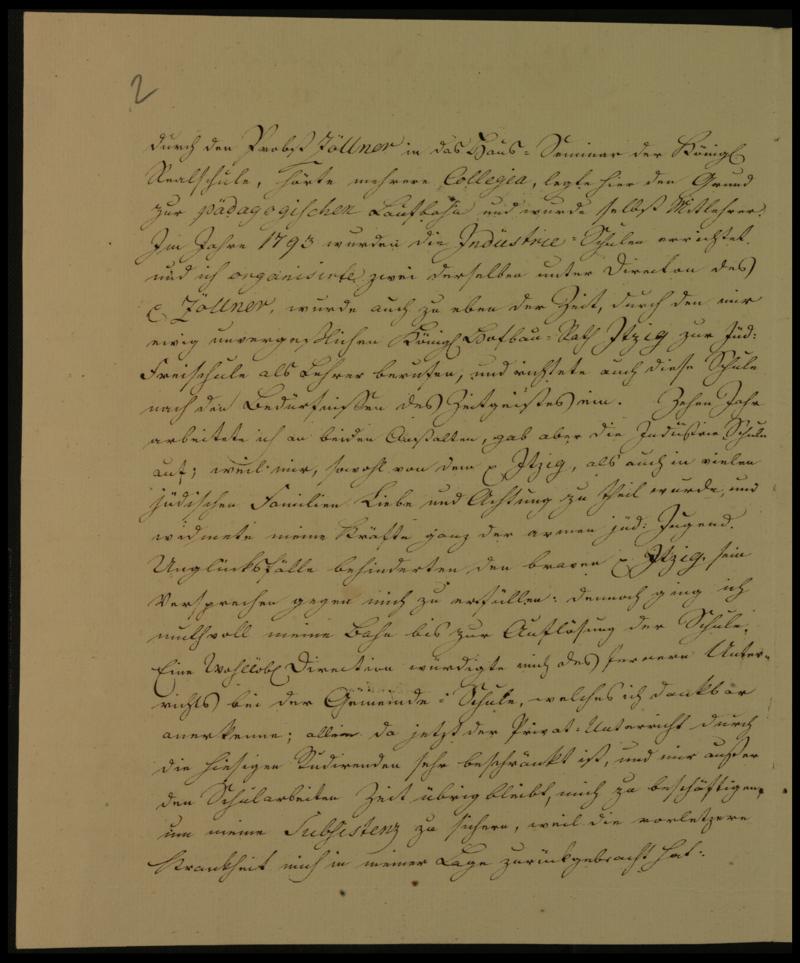 2
durch den Probst Zöllner in das Haus-Seminar der Königl
Realschule, hörte mehrere Collegia, legte hier den Grund
zur pädagogischen Laufbahn und wurde selbst Mitlehrer.
Im Jahre 1793 wurden die Industrie-Schulen errichtet.
und ich organisirte zwei derselben unter Direction des
p Zöllner, wurde auch zu eben der Zeit, durch den mir
ewig unvergeßlichen Königl Hofbau-Rath Itzig zur Jüd:
Freischule als Lehrer berufen, und richtete auch diese Schule
nach den Bedürfnißen des Zeitgeistes ein. Zehen Jahr
arbeitete ich an beiden Anstalten, gab aber die Industrie Schule
auf; weil mir, sowohl von dem p Itzig, als auch in vielen
jüdischen Familien Liebe und Achtung zu Theil wurde, und
widmete meine Kräfte ganz der armen jüd: Jugend.
Unglücksfälle behinderten den braven p Itzig, sein
Versprechen gegen mich zu erfüllen: dennoch ging ich
muthvoll meine Bahn bis zur Auflösung der Schule.
Eine Wohllöbl Direction würdigte mich des fernern Unter-
richts bei der Gemeinde-Schule, welches ich dankbar
anerkenne; allein da jetzt der Privat-Unterricht durch
die hiesigen Studirenden sehr beschränkt ist, und mir außer
den Schularbeiten Zeit übrig bleibt, mich zu beschäftigen,
um meine Subsistenz zu sichern, weil die vorletzere
Krankheit mich in meiner Lage zurückgebracht hat: